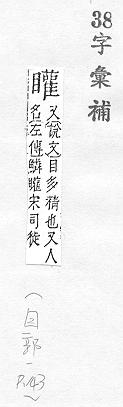 38字彙補
矔
又[說文]目多精也又人
名[左傳]鱗矔宋司徒
(目部 P.143)